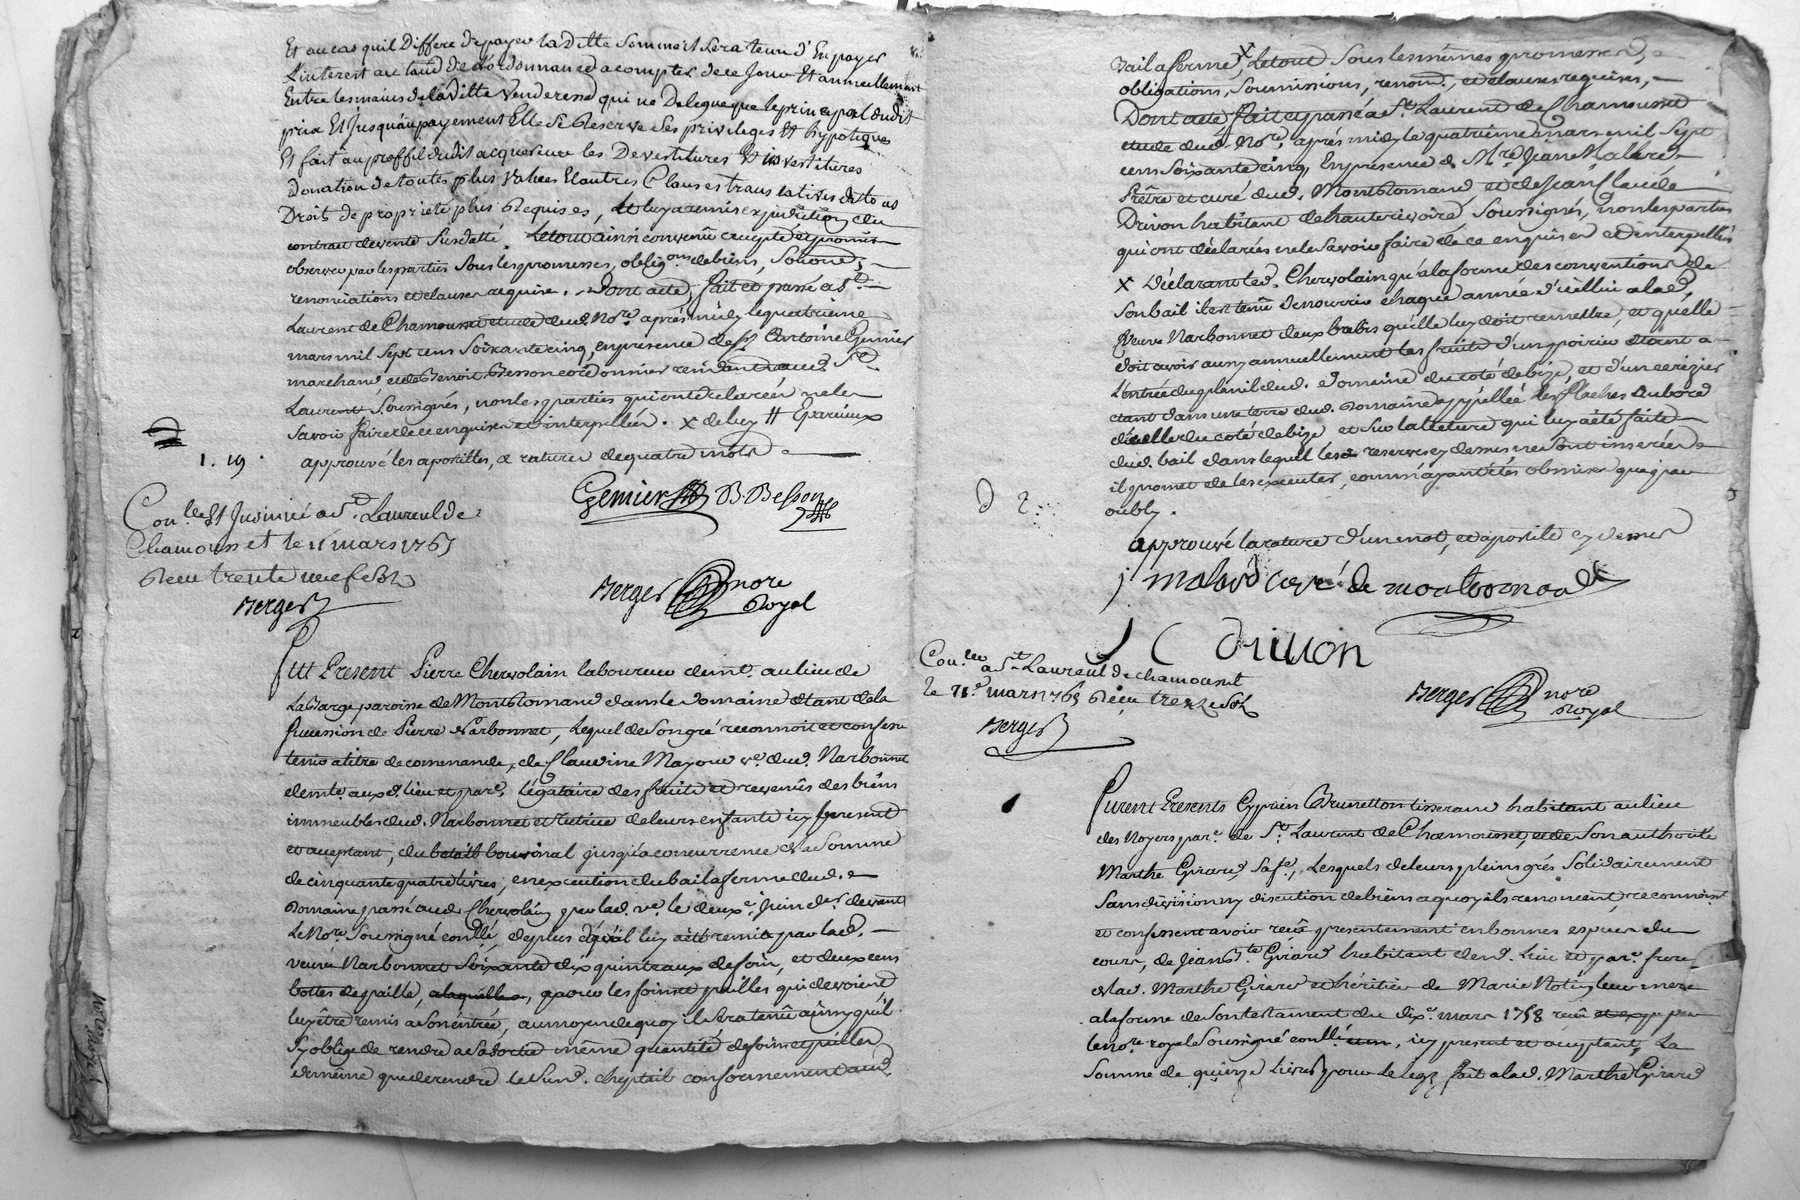 Et au cas quil Differe de payer la ditte Somme il Sera tenu d'En payer
L'interest au taud de L'ordonnance a compter de ce Jour Et annuellement
Entre les mains de laditte Venderesse qui ne Delegue que le principal dudit
prix Et Jusqu'au payement Elle Se Reserve Ses privileges Et hypoteque
Et fait au proffit dudit acquereur les Devestitures Et investitures
donation de toutes plus Values Et autres Clauses translatives de tous
Droit de proprieté plus Requises,
contrat de vente Susdatté. Le tout ainsi convenû accepté et promis
observer par les parties Sous les promesses, obligons. de biens,
renonciations et clauses requises. Dont acte, fait et passé a St.
Laurent de Chamousset etude dud. Nore. après midy le quatrieme
mars mil Sept cens Soixante cinq, en presence de Sr. Antoine Gemier
marchand, et de Benoit Besson cordonnier residents aud. St.
Laurent Soussignés, non les parties qui ont declaréés ne le
Savoir faire de ce enquises et interpellées. x de luy # Evarieux
approuvé les apostilles, & ratures de quatre mots
1. 19.
Gemier B. Besson
Con.le Et Insinué a St. Laurent de
Chamousset le 11 mars 1765
Reçu trente neuf sols
Berger
Berger nore
Royal
Fut Present Pierre Cherblain laboureur demt. au lieu de
La Barge paroisse de Montromand dans le Domaine étant de la
Succession de Pierre Narbonnet, Lequel de Son gré reconnoit et confesse
tenir a titre de commande, de Claudine Mayoud ve. dud. Narbonnet
demte. aux d. lieu et pare. Légataire des fruits et revenûs des biens
immeubles dud. Narbonnet et tutrice de leurs enfants icy present
et acceptant, du betail bouvinal jusqu'a concurrence de la Somme
de cinquante quatre livres, en execution du bail a ferme dud.
Domaine passé aud. Cherblain par lad. ve. le deuxe. Juin der. devant
Le Nore. Soussigné conllé, de plus qu'il luy a été remis par lad.
veuve Narbonnet Soixante dix quinteaux de foin, et deux cens
bottes de paille, a laquelle, pour les foins et pailles qui devoient
luy être remis a Son entrée, au moyen de quoy il Sera tenû ainsy qu'il
S'y oblige de rendre a Sa Sortie même quantité de foins et pailles
de même que de rendre le Susd. cheptail conformement aud.
Bail a ferme, x Le tout Sous les mêmes promesses,
obligations, Soumissions, renonons, et clauses requises,
Dont acte fait et passé a St. Laurent de Chamousset
etude dud. Nore. après midy le quatrieme mars mil Sept
cens Soixante cinq, En presence de Mre. Jean Mallard
Prêtre et curé dud. Montromand, et de Jean Claude
Drivon habitant de hauterivoire Soussignés, non les parties
qui ont déclarées ne le Savoir faire de ce enquises et interpellés
x Déclarant led. Cherblain qu'a la forme des conventions de
Son bail il est tenû de nourrir chaque année d'icelluy a lad.
Veuve Narbonnet deux brebis qu'elle luy doit remettre, et qu'elle
doit avoir aussy annuellement les fruits d'un poirier étant a
L'entrée du plenil dud. Domaine du coté de bize, et d'un cerizier
étant dans une terre dud. Domaine appellée les Plaches au bord
d'icelle du coté de bize et Sur la lecture qui luy a été faite
dud. bail dans lequel les reserves cy dessus ne Sont inserées
il promet de les executer, comm'ayant étés obmises que par
oubly.
D 2.
approuvé la rature d'un mot, et apostile cy dessus
j malard curé de montromand
J C drivon
Con.le a St Laurent de chamousset
le 11e mars 1765 Reçu treize Sols
Berger
Berger nore
Royal
Furent Presents Cyprien Brunetton tisserand habitant au lieu
des Noyers pare. de St. Laurent de Chamousset, et de Son authorité
Marthe Girard Sa fe., Lesquels de leurs pleins grés Solidairement
Sans division ny discution de biens a quoy ils renoncent, reconnoissent
et confessent avoir reçû presentement en bonnes especes du
cours, de Jean Bte. Girard habitant des d. Lieu et pare. frere
de lad. Marthe Girard et héritier de Marie Notin leur mere
a la forme de Son testament du dixe. mars 1758 reçu par
le nore. royal Soussigné conllé, icy present et acceptant, La
Somme de quinze Livres pour le legs fait a lad. Marthe Girard